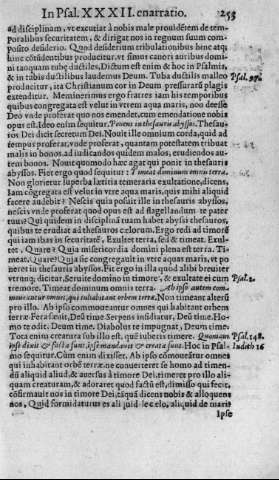 In Psal. XXXII. enarratio. 253
ad disciplinam, vt excutiar à nobis male prouidẽtem de tem-
poralibus securitatem, & dirigat nos in regnum suum com-
posito desiderio. Quod desiderium tribulationibus hinc atq;
hinc cõtudentibus producitur, vt simus canori atribus domi-
ni tanquam tubæ ductiles. Dictum est enim & hoc in Psalmis,
& in tubis ductilibus laudemus Deum. Tuba ductilis malleo Psal. 97.
producitur, ita Christianum cor in Deum pressuraru plagis
extenditur. Meminerimus ergo fratres iam his temporibus
quibus congregata est velut in vtrem aqua maris, non deesse
Deo vnde proferat quo nos emendet, cum emendatione nobis
opus est. Ideo enim sequitur, Ponens in thesauris abyssos. Thesau-
ros Dei dicit secretum Dei. Nouit ille omnium corda, quid ad
tempus proferat, vnde proferat, quantam potestatem tribuat
malis in bonos, ad iudicandos quidem malos, erudiendos au-
tem bonos. Nouit quomodo hæc agat qui ponit in thesauris
abyssos. Fiat ergo quod sequitur: Timeat dominum omnis terra.
Non glorietur superba lætitia temeraria exultatione, dicens,
Iam congregata est velut in vtre aqua maris, quis mihi aliquid
facere audebit? Nescis quia posuit ille in thesauris abyssos,
nescis vnde proferat quod opus est ad flagellandum te pater
tuus? Qui quidem in disciplinã tuam habet abyssi thesauros,
quibus te erudiat ad thesauros cælorum. Ergo redi ad timorẽ
qui iam ibas in securitatẽ. Exultet terra, sed & timeat. Exul-
tet. Quare? Quia misericordia domini plena est terra. Ti-
meat. Quare? Quia sic congregauit in vtrem aquas maris, vt po-
neret in thesauris abyssos. Fit ergo in illa quod alibi breuiter
vtrunq; dicitur, Seruite domino in timore, & exultate ei cum Psal. 2.
tremore. Timeat dominum omnis terra. Ab ipso autem com-
moueantur omnes, qui inhabitant orbem terræ. Non timeant alterũ
pro illo. Ab ipso commoueantur omnes qui habitant orbem
terræ. Fera sæuit, Deũ time. Serpens insidiatur, Deũ time. Ho-
mo te odit, Deum time. Diabolus te impugnat, Deum time.
Tota enim creatura sub illo est, quẽ iuberis timere. Quoniam Psal. 148.
ipse dixit & facta sunt, ipse mandauit & creata sunt. Hoc in Psal- Iudith. 16
mo sequitur. Cùm enim dixisset, Ab ipso cõmoueãtur omnes
qui inhabitant orbẽ terræ, ne conuerteret se homo ad timen-
dũ aliquid aliud, & auersus à timore Dei, timeret pro illo ali-
quam creaturam, & adoraret quod factũ est, dimisso qui fecit,
cõfirmauit nos in timore Dei, tãquã dicens nobis & alloquens
nos, Quid formidaturus es aliquid de cælo, aliquid de maris
Ipse